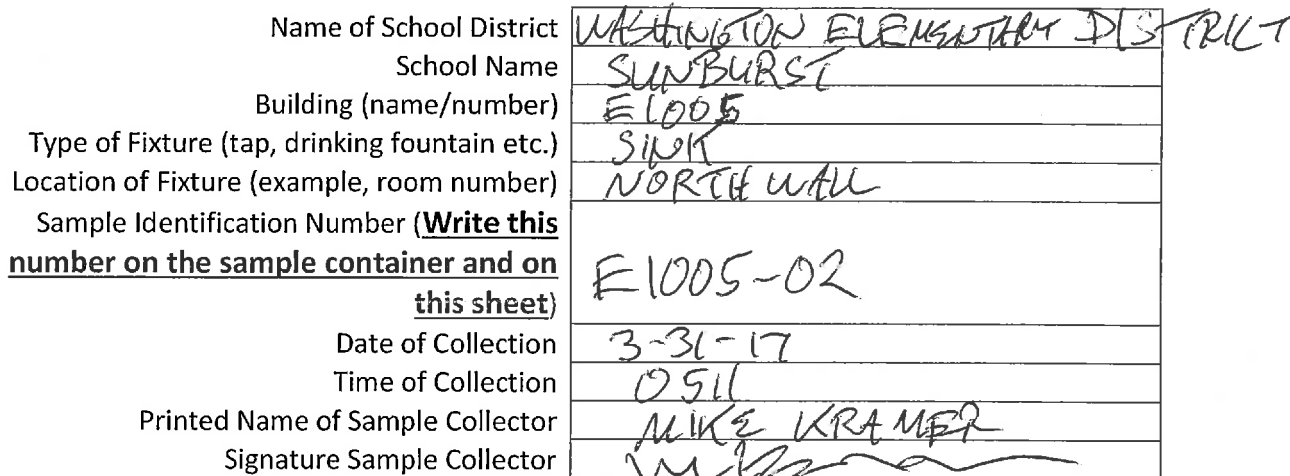 Name of School District WASHINGTON ELEMENTARY DISTRICT
School Name SUNBURST
Building (name/number) E1005
Type of Fixture (tap, drinking fountain etc.) SINK
Location of Fixture (example, room number) NORTH WALL
Sample Identification Number (Write this
number on the sample container and on
this sheet) E1005-02
Date of Collection 3-31-17
Time of Collection 0511
Printed Name of Sample Collector MIKE KRAMER
Signature Sample Collector